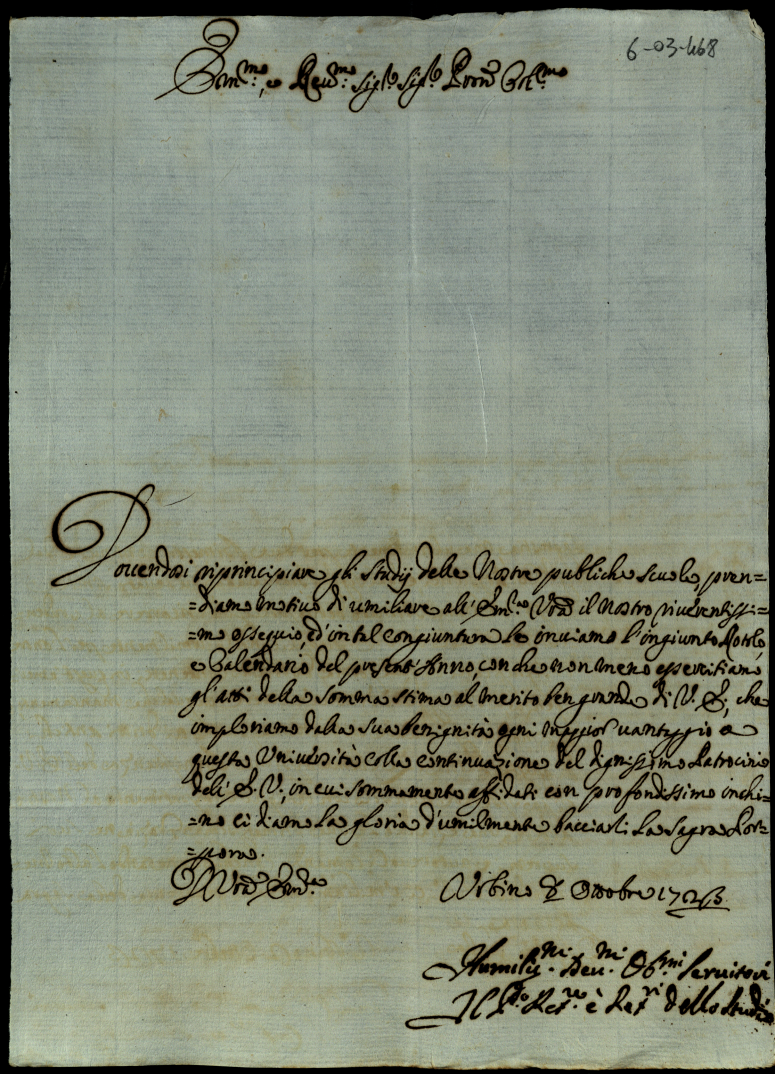 6-03-468
Em.mo, e Reu.mo Sig.r Sig.r Pron Col.mo
Douendosi riprincipiare gli Studij delle Nostre publiche scuole, pren=
=diamo motiuo di umiliare all' Em.za Vra il nostro riuerentissi=
=mo ossequio, ed' in tal congiuntura le inuiamo l'ingiunto Rotolo,
e Calendario del present' Anno, con che non meno essercitiamo
gl'atti della somma stima al merito ben grande di V. E., che
imploriamo dalla sua benignità ogni maggior uantaggio a
questa Uniuersità colla continuazione del dignissimo Patrocinio
dell' E. V., in cui sommamente affidati con profondissimo inchi=
=no ci diamo la gloria d'umilmente bacciarli la Sagra Por=
=pora.
D Vra Em.za Urbino 8 Ottobre
Humiliss.mi Deu.mi Obb.mi Seruitori
Il P.to Ret.re e Ref.ri dello Studio